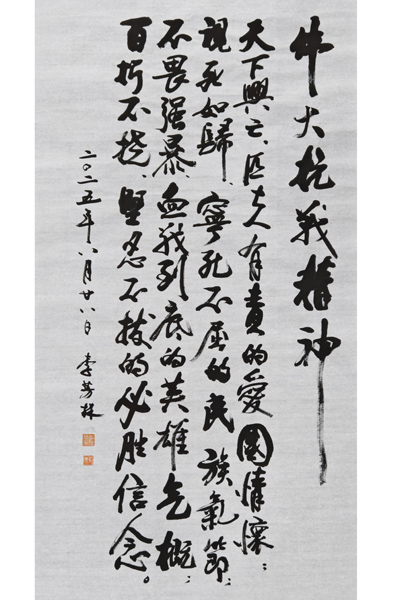 伟大抗战精神
天下興亡、匹夫有責的愛國情懷；
視死如歸、寧死不屈的民族氣節；
不畏强暴、血戰到底的英雄气概；
百折不撓、堅忍不拔的必胜信念。
二〇二五年八月廿八日 李芳林